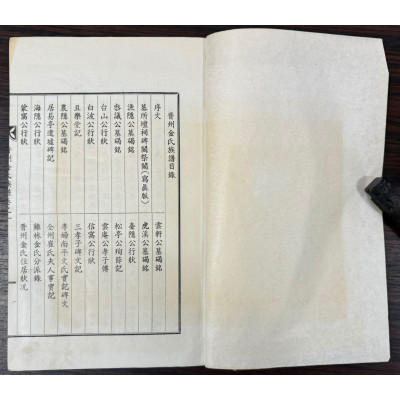 晋州金氏族譜目錄
序文
墓所壇祠碑閣祭閣(寫眞版)
漁隱公墓碣銘
台山公行狀
白波公行狀
且樂堂記
農隱公墓碣銘
居易亭遺墟碑記
海隱公行狀
蒙窩公行狀
雲軒公墓碣銘
虎溪公墓碣銘
春隱公行狀
松亭公殉節記
雲庵公孝子傳
信窩公行狀
三孝子碑文記
孝婦南平文氏實記碑文
全州崔氏夫人事實記
雞林金氏分派錄
晋州金氏住居狀況